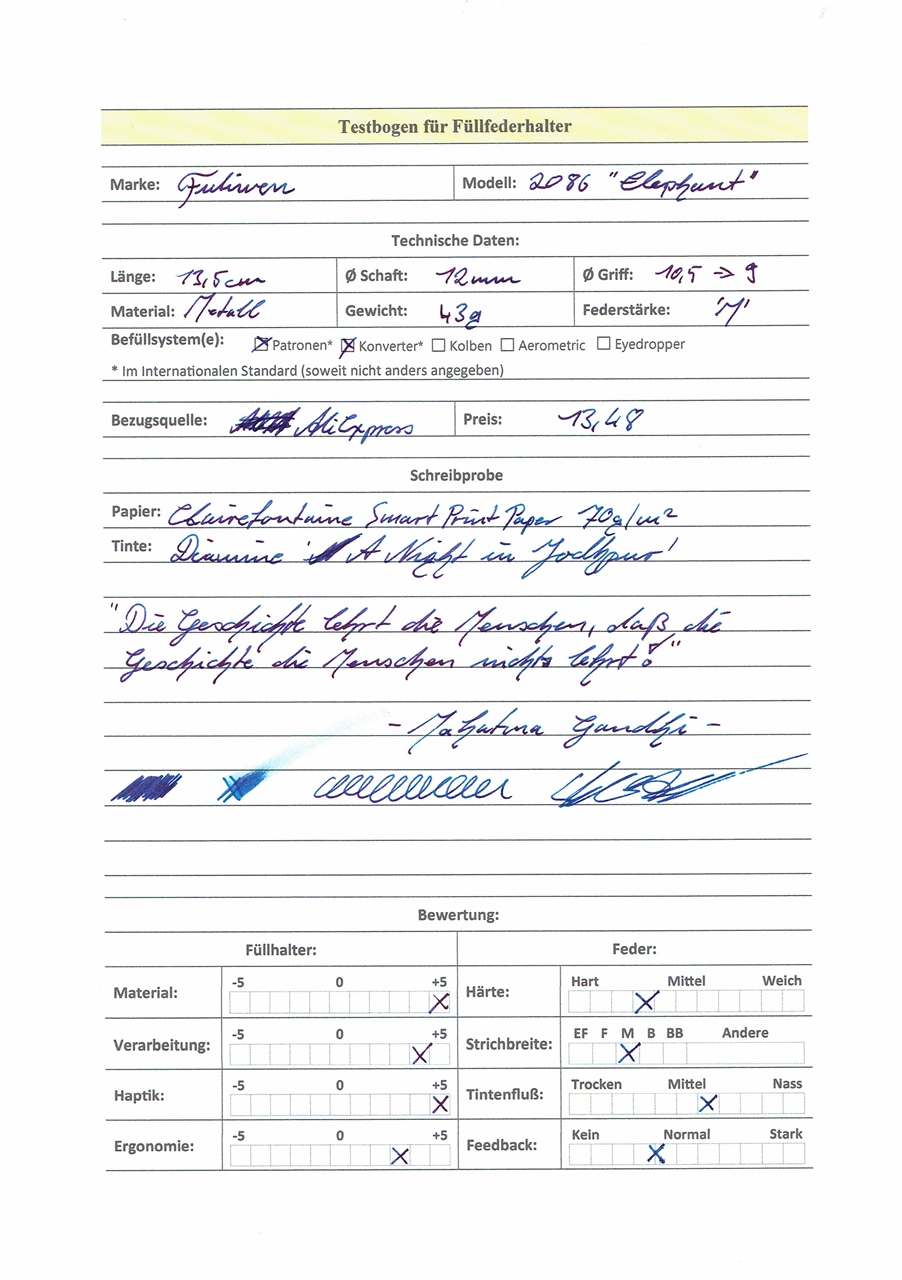 Testbogen für Füllfederhalter
Marke: Fuliwen Modell: 2086 "Elephant"
Technische Daten:
Länge: 13,5cm Ø Schaft: 12mm Ø Griff: 10,5 -> 9
Material: Metall Gewicht: 43g Federstärke: 'M'
Befüllsystem(e): ☒ Patronen* ☒ Konverter* ☐ Kolben ☐ Aerometric ☐ Eyedropper
* Im Internationalen Standard (soweit nicht anders angegeben)
Bezugsquelle: AliExpress Preis: 13,48
Schreibprobe
Papier: Clairefontaine Smart Print Paper 70g/m²
Tinte: Diamine 'A Night in Jodhpur'
"Die Geschichte lehrt die Menschen, daß die
Geschichte die Menschen nichts lehrt!"
- Mahatma Gandhi -
Bewertung:
Füllhalter: Feder:
Material: -5 0 +5 Härte: Hart Mittel Weich
Verarbeitung: -5 0 +5 Strichbreite: EF F M B BB Andere
Haptik: -5 0 +5 Tintenfluß: Trocken Mittel Nass
Ergonomie: -5 0 +5 Feedback: Kein Normal Stark